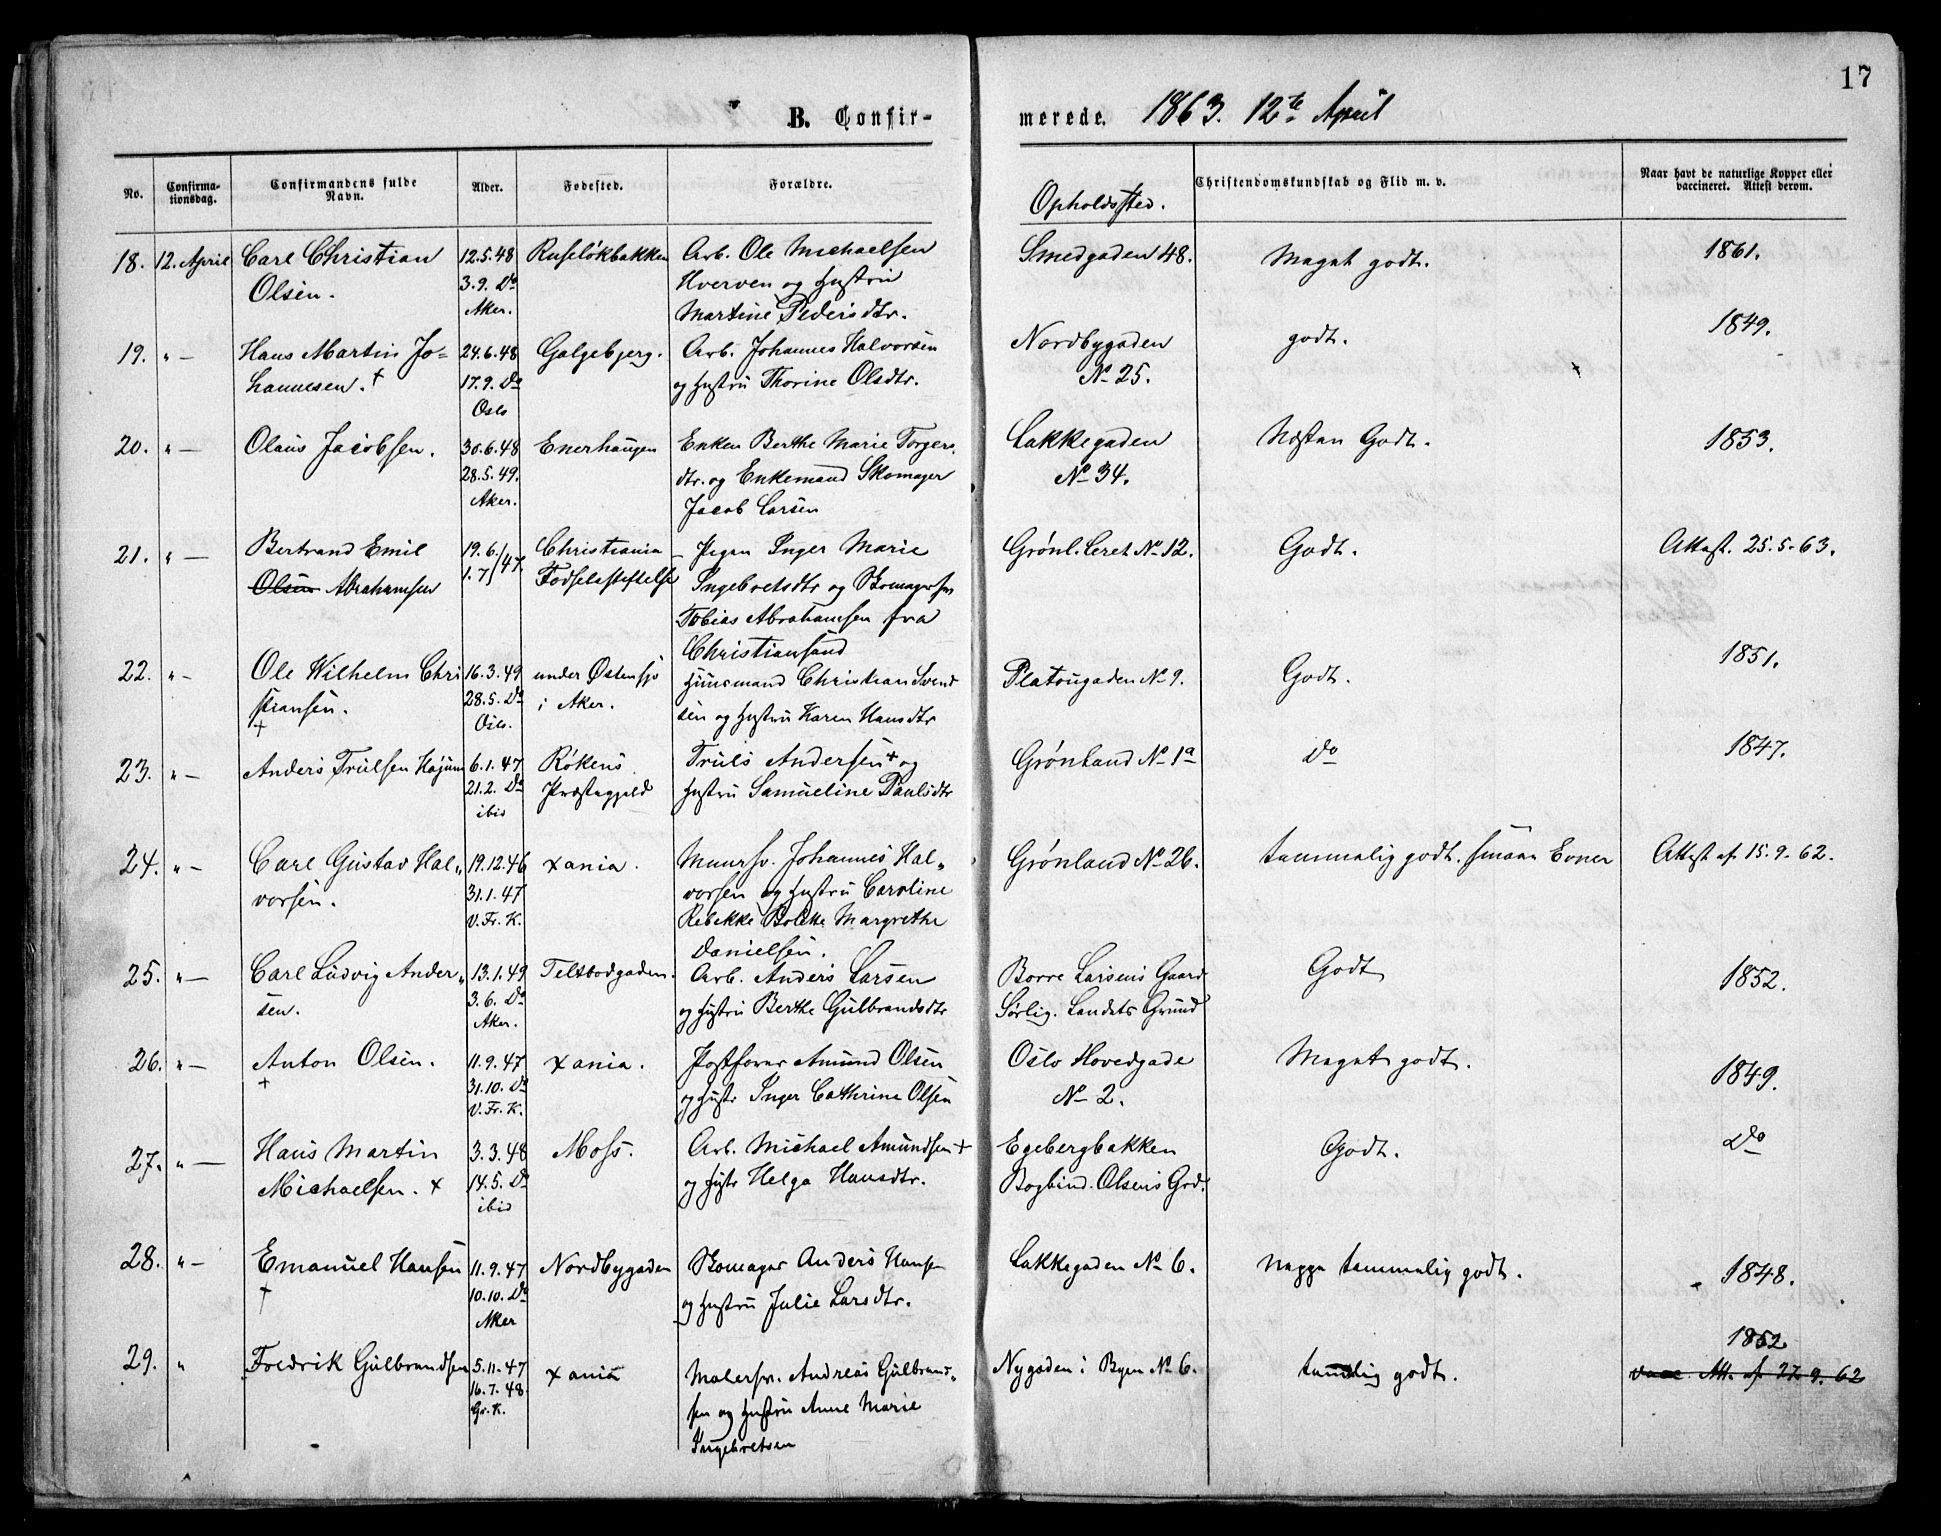 17
B. Confir-
merede. 1863. 12te April
No. Confirma-tionsdag. Confirmandens fulde Navn. Alder. Fødested. Forældre. Opholdssted. Christendomskundskab og Flid m. v. Naar havt de naturlige Kopper eller vaccineret. Attest derom.
18. 12. April Carl Christian 12.5.48 Ruseløkbakken Arb. Ole Michaelsen Smedgaden 48. Meget godt. 1861.
Olsen. 3.9. Do Hverven og Hustru
Aker. Martine Pedersdtr.
19. " — Hans Martin Jo= 24.6.48 Galgebjerg. Arb. Johannes Halvorsen Nordbygaden godt. 1849.
hannesen. + 17.9. Do og Hustru Thorine Olsdtr. No 25.
Oslo
20. " — Olaus Jacobsen. 30.6.48 Enerhaugen Enken Berthe Marie Torgers Lakkegaden Næsten Godt. 1853.
28.5.49. dtr. og Enkemand Skomager No 34.
Aker. Jacob Larsen
21. " — Bertrand Emil 19.6. Christiania Pigen Inger Marie Grønl. Leret No 12. Godt. Attest. 25.5.63.
Olsen Abrahamsen 1.7 /47. Fødselsstiftelse Ingebretsdtr og Skomagersv
Tobias Abrahamsen fra
Christiansand
22. " — Ole Wilhelm Chri 16.3.49 under Østensjø Huusmand Christian Svend Platougaden No 9. Godt. 1851.
stiansen. 28.5. Do i Aker. sen og Hustru Karen Hansdtr
+ Oslo.
23. " — Anders Trulsen Højum 6.1.47 Røkens Truls Andersen + og Grønland No 1a Do 1847.
21.2. Do Præstegjeld Hustru Samueline Paulsdtr
ibid
24. " — Carl Gustav Hal„ 19.12.46 Xania. Muursv. Johannes Hal„ Grønland No 26. temmelig godt. smaae Evner Attest af 15.9.62.
vorsen. 31.1.47 vorsen og Hustru Caroline
V. Fr. K. Rebekke Bolette Margrethe
Danielsen.
25. " — Carl Ludvig Ander„ 13.1.49 Teltbodgaden. Arb. Anders Larsen Borre Larsens Gaard Godt 1852.
sen. 3.6. Do og Hustru Berthe Gulbrandsdtr Sørlig. Landets Grund
Aker.
26. " — Anton Olsen. 11.9.47 Xania. Postfører Amund Olsen Oslo Hovedgade Meget godt. 1849.
+ 31.10. Do og Hustr Inger Cathrine Olsen No 2.
V. Fr. K.
27. " — Hans Martin 3.3.48 Moss. Arb. Michael Amundsen + Egebergbakken Godt. Do
Michaelsen. + 14.5. Do og Hustr Helga Hansdtr. Bogbind. Olsens Grd.
ibid
28. " — Emanuel Hansen 11.9.47 Nordbygaden Skomager Anders Hansen Lakkegaden No 6. neppe temmelig godt. 1848.
+ 10.10. Do og Hustru Julie Larsdtr.
Aker
29. " Fredrik Gulbrandsen 5.11.47 Xania Malersv. Andreas Gulbrand„ Nygaden i Byen No 6. temlig godt. 1852
16.7.48 sen og Hustru Anne Marie vacc. Att. af 27.9.62
Gr. K. Ingebretsen